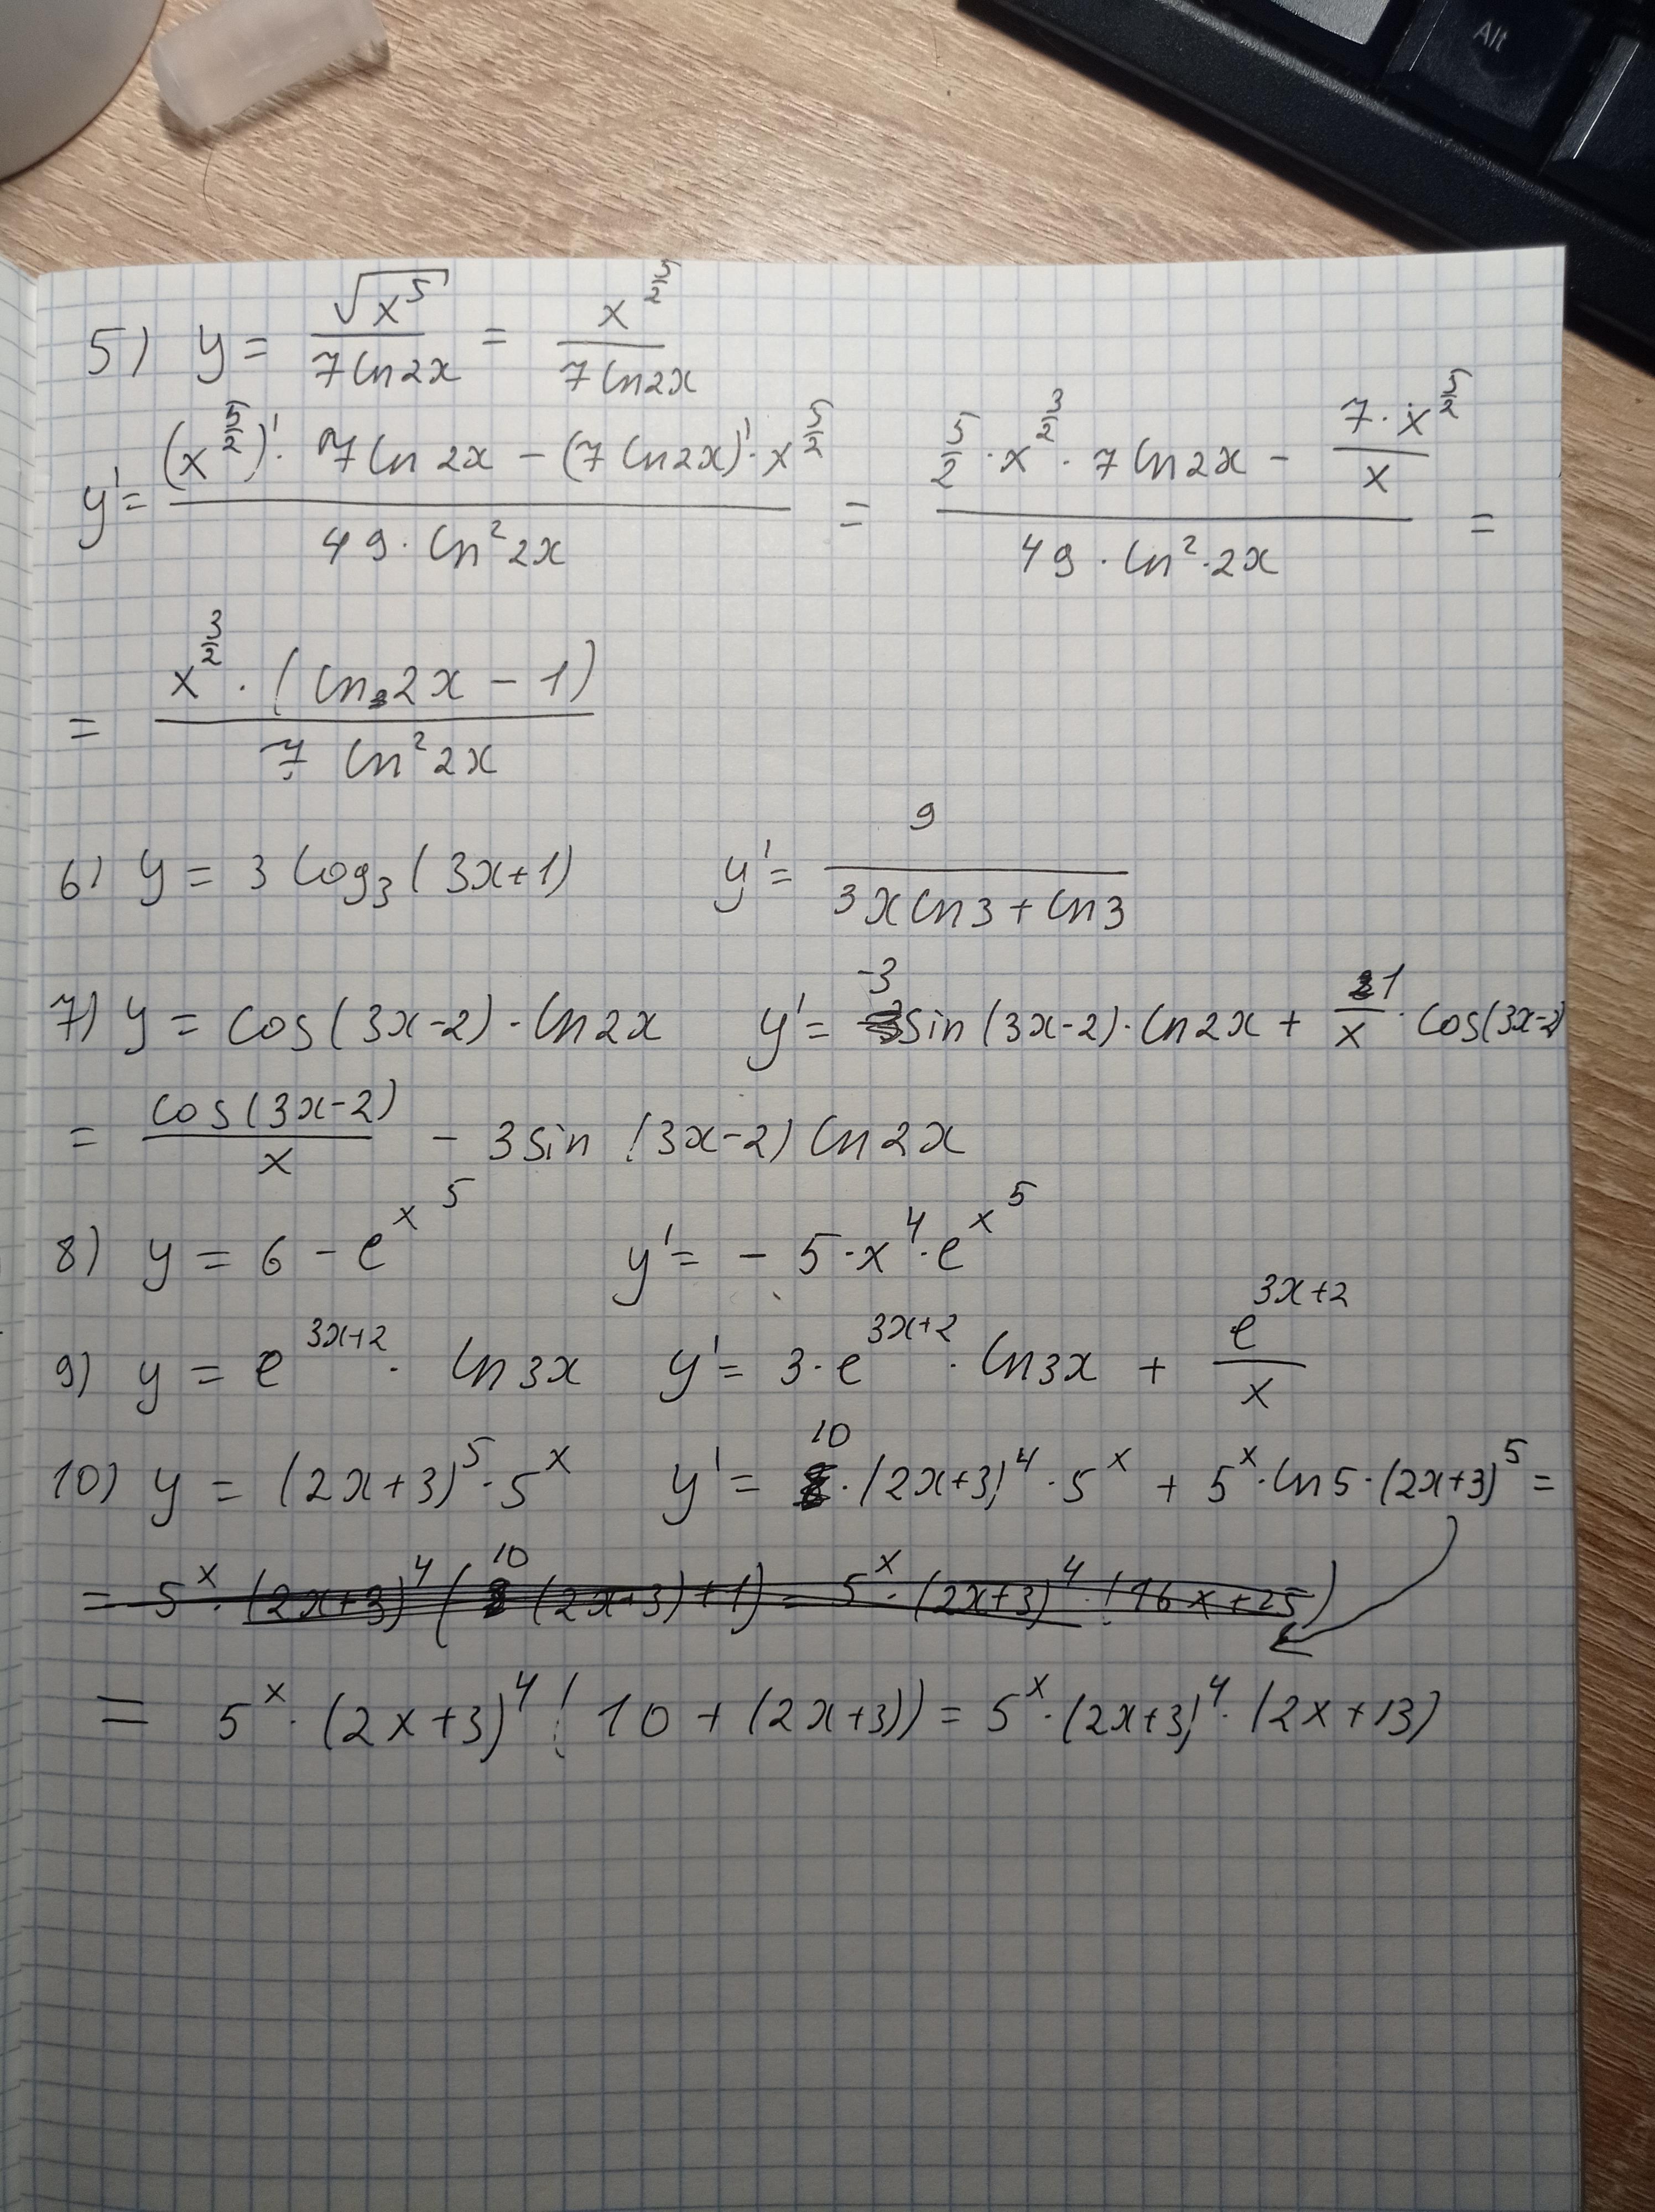 Alt
5) y = √x⁵ / 7 ln2x = x^(5/2) / 7 ln2x
y' = ((x^(5/2))' · 7 ln 2x − (7 ln2x)' · x^(5/2)) / (49 · ln² 2x) = (5/2 · x^(3/2) · 7 ln2x − (7 · x^(5/2))/x) / (49 · ln² · 2x) =
= x^(3/2) · (ln 2x − 1) / 7 ln² 2x
6) y = 3 log₃ (3x+1) y' = 9 / (3x ln3 + ln3)
7) y = cos(3x-2) · ln2x y' = -3 sin (3x-2) · ln2x + 1/x · cos(3x-2)
= cos(3x-2)/x − 3 sin (3x-2) ln 2x
8) y = 6 − e^(x^5) y' = − 5 · x⁴ · e^(x^5)
9) y = e^(3x+2) · ln 3x y' = 3 · e^(3x+2) · ln3x + e^(3x+2)/x
10) y = (2x+3)⁵ · 5^x y' = 10 · (2x+3)⁴ · 5^x + 5^x · ln5 · (2x+3)⁵ =
= 5^x · (2x+3)⁴ (10 (2x+3) + 1) = 5^x · (2x+3)⁴ · (16x + 25)
= 5^x · (2x+3)⁴ (10 + (2x+3)) = 5^x · (2x+3)⁴ · (2x + 13)